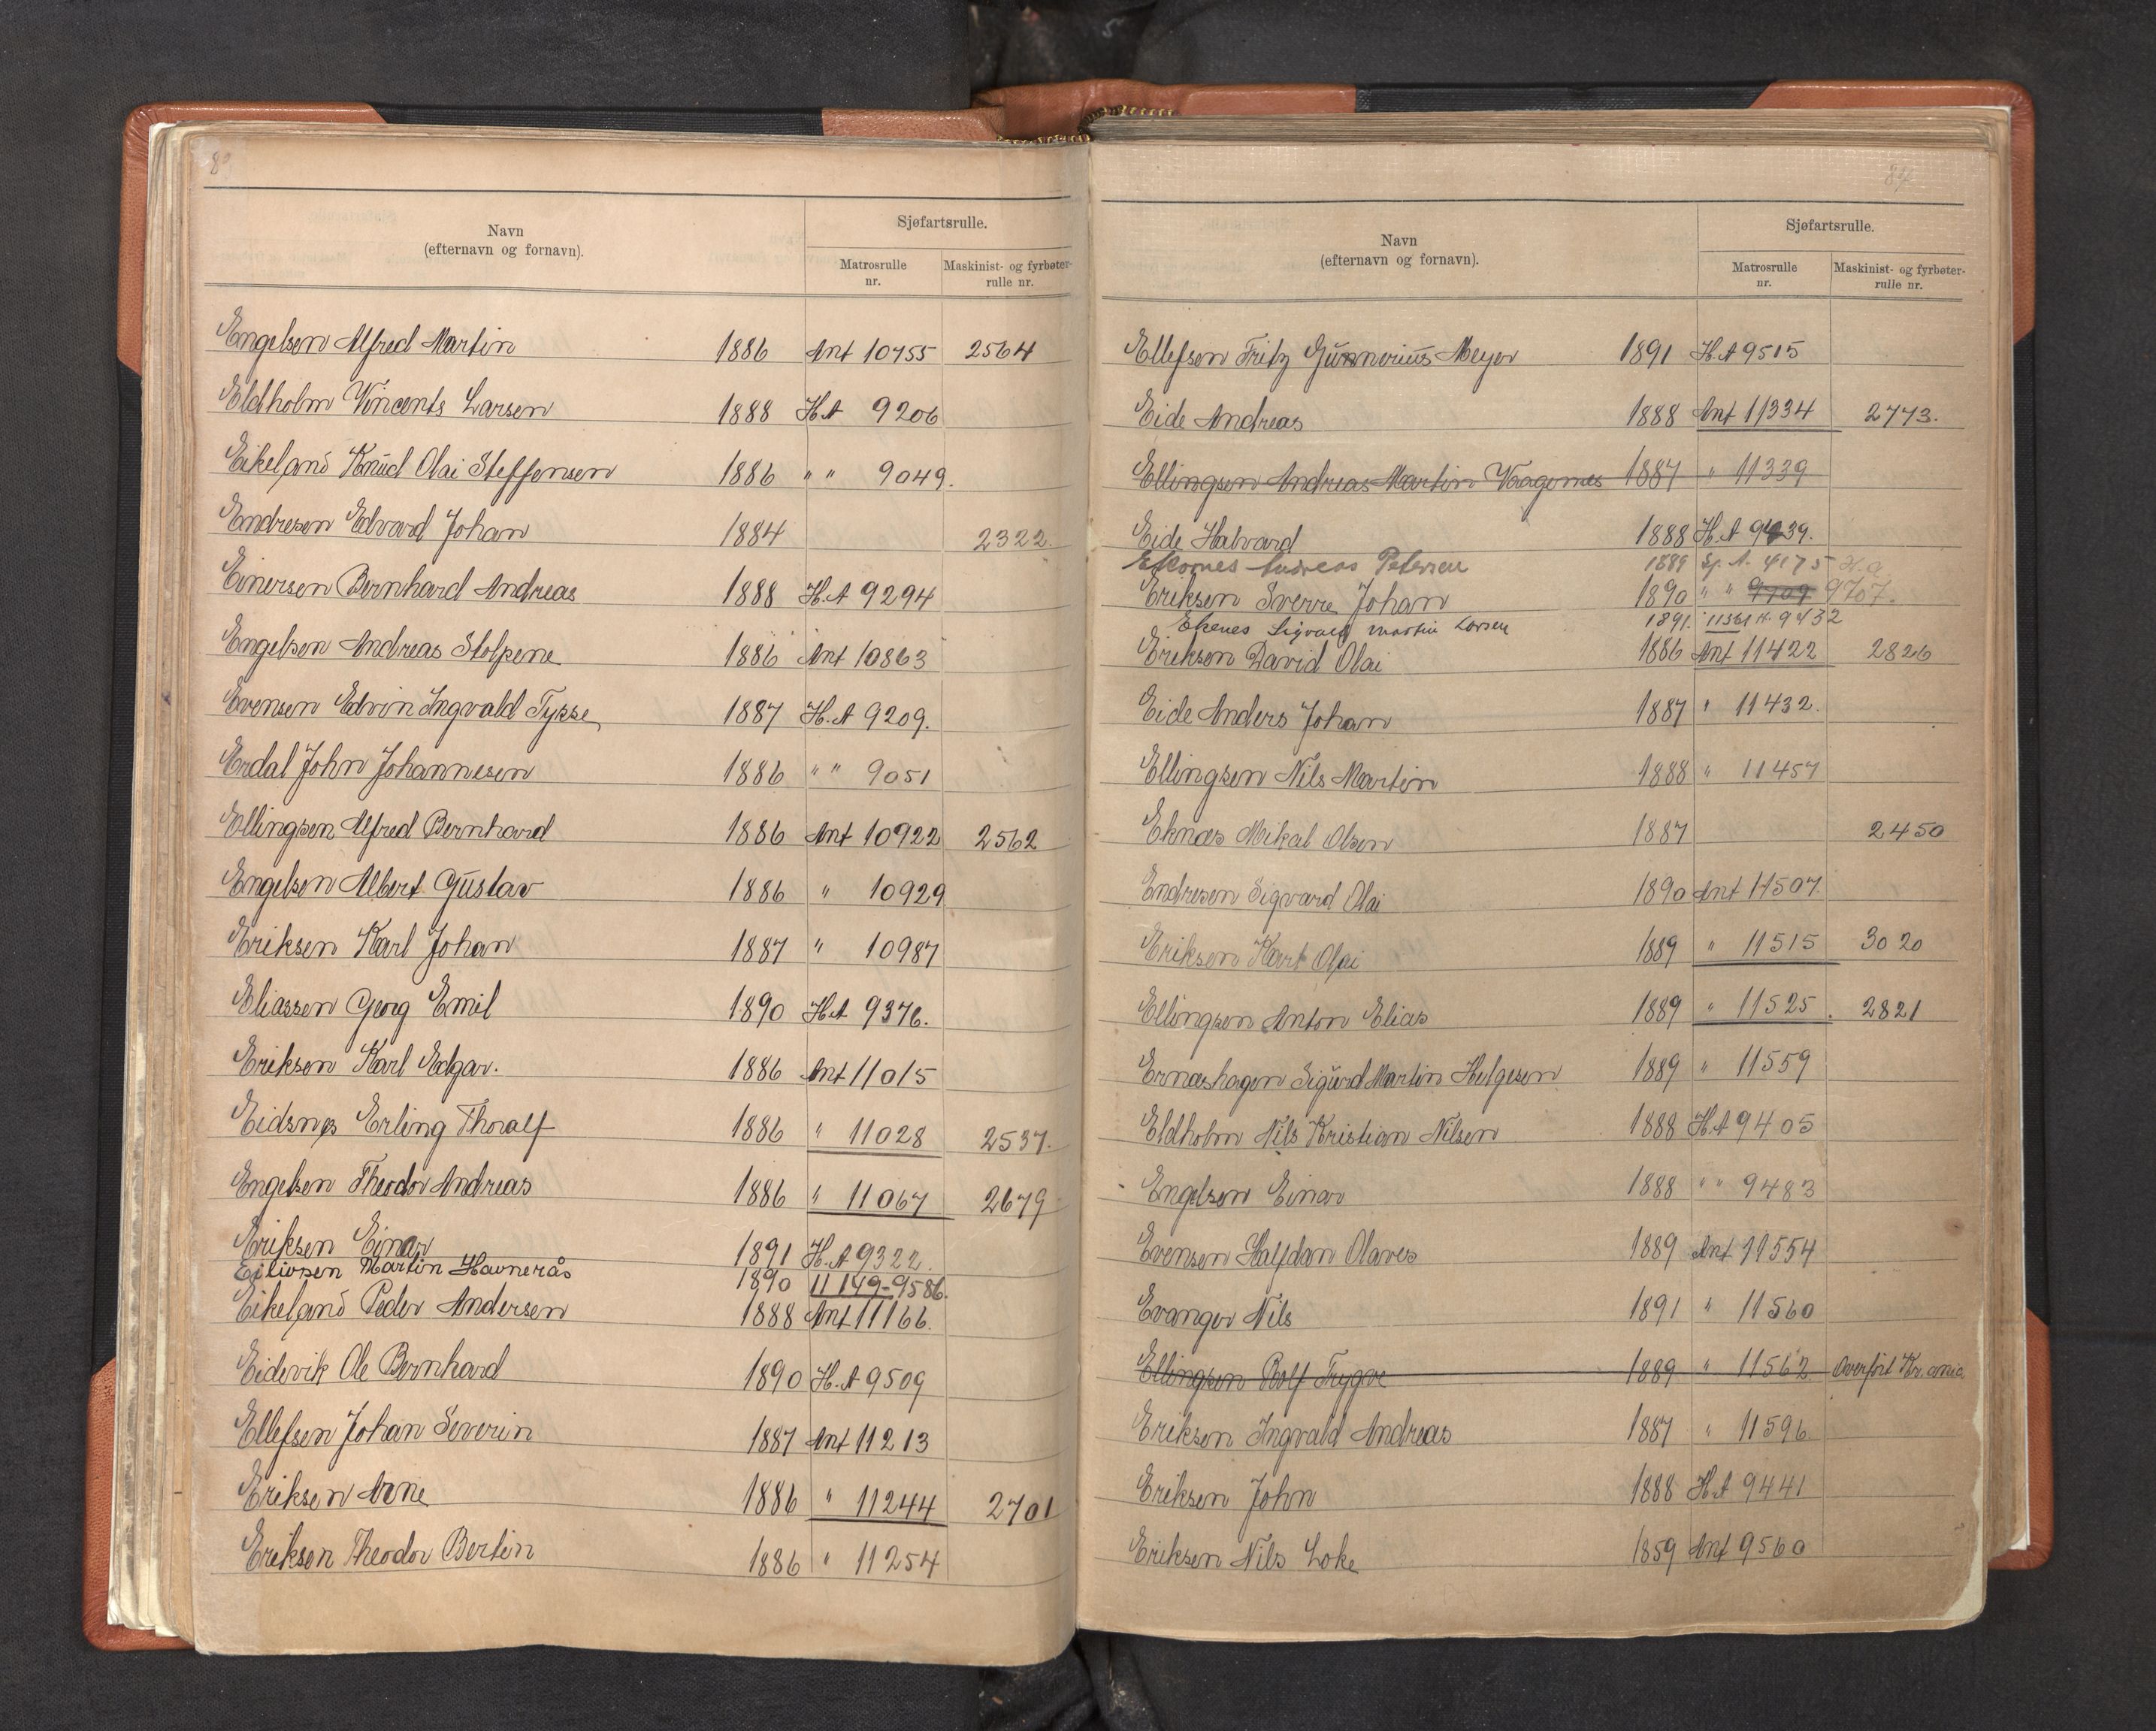 83
Navn
(efternavn og fornavn).
Sjøfartsrulle.
Matrosrulle
nr.
Maskinist- og fyrbøter-
rulle nr.
Engelsen Alfred Martin 1886 Ant 10755 2564
Eldholm Vincents Larsen 1888 H.A 9206
Eikeland Knud Olai Steffensen 1886 " " 9049.
Endresen Edvard Johan 1884 2322.
Einersen Bernhard Andreas 1888 H.A 9294
Engelsen Andreas Stolpene 1886 Ant 10863
Evensen Edvin Ingvald Tysse 1887 H.A 9209.
Erdal John Johannesen 1886 " " 9051
Ellingsen Alfred Bernhard 1886 Ant 10922 2562
Engelsen Albert Gustav 1886 " 10929
Eriksen Karl Johan 1887 " 10987
Eliassen Georg Emil 1890 H.A 9376.
Eriksen Karl Edgar. 1886 Ant 11015
Eidsnes Erling Thoralf 1886 " 11028 2537.
Engelsen Theodor Andreas 1886 " 11067 2679
Eriksen Einar 1891 H.A 9322.
Eilivsen Martin Havnerås 1890 11149-9586.
Eikeland Peder Andersen 1888 Ant 11166.
Eidevik Ole Bernhard 1890 H.A 9509
Ellefsen Johan Severin 1887 Ant 11213
Eriksen Arne 1886 " 11244 2701
Eriksen Theodor Bertin 1886 " 11254
84
Navn
(efternavn og fornavn).
Sjøfartsrulle.
Matrosrulle
nr.
Maskinist- og fyrbøter-
rulle nr.
Ellefsen Fritz Gunnerius Meyer 1891 H.A 9515
Eide Andreas 1888 Ant 11334 2773.
Ellingsen Andreas Martin Vaagenes 1887 " 11339
Eide Halvard 1888 H.A 9439.
Ekornes Andreas Petersen 1889 Sp. A. 4175 H.A
Eriksen Sverre Johan 1890 " " 9709 9707.
Ekenes Sigvald Martin Larsen 1891. 11361 H. 9432
Eriksen David Olai 1886 Ant 11422 2826
Eide Anders Johan 1887 " 11432.
Ellingsen Nils Martin 1888 " 11457
Eknæs Mikal Olsen 1887 2450
Endresen Sigvard Olai 1890 Ant 11507.
Eriksen Karl Olai 1889 " 11515 3020
Ellingsen Anton Elias 1889 " 11525. 2821
Ernæshagen Sigurd Martin Helgesen 1889 " 11559
Eldholm Nils Kristian Nilsen 1888 H.A 9405
Engelsen Einar 1888 " " 9483
Evensen Halfdan Olaves 1889 Ant 11554
Evanger Nils 1891 " 11560
Ellingsen Rolf Trygve 1889 " 11562 Overført Kr.ania.
Eriksen Ingvald Andreas 1887 " 11596
Eriksen John 1888 H.A 9441
Eriksen Nils Loke 1859 Ant 9560